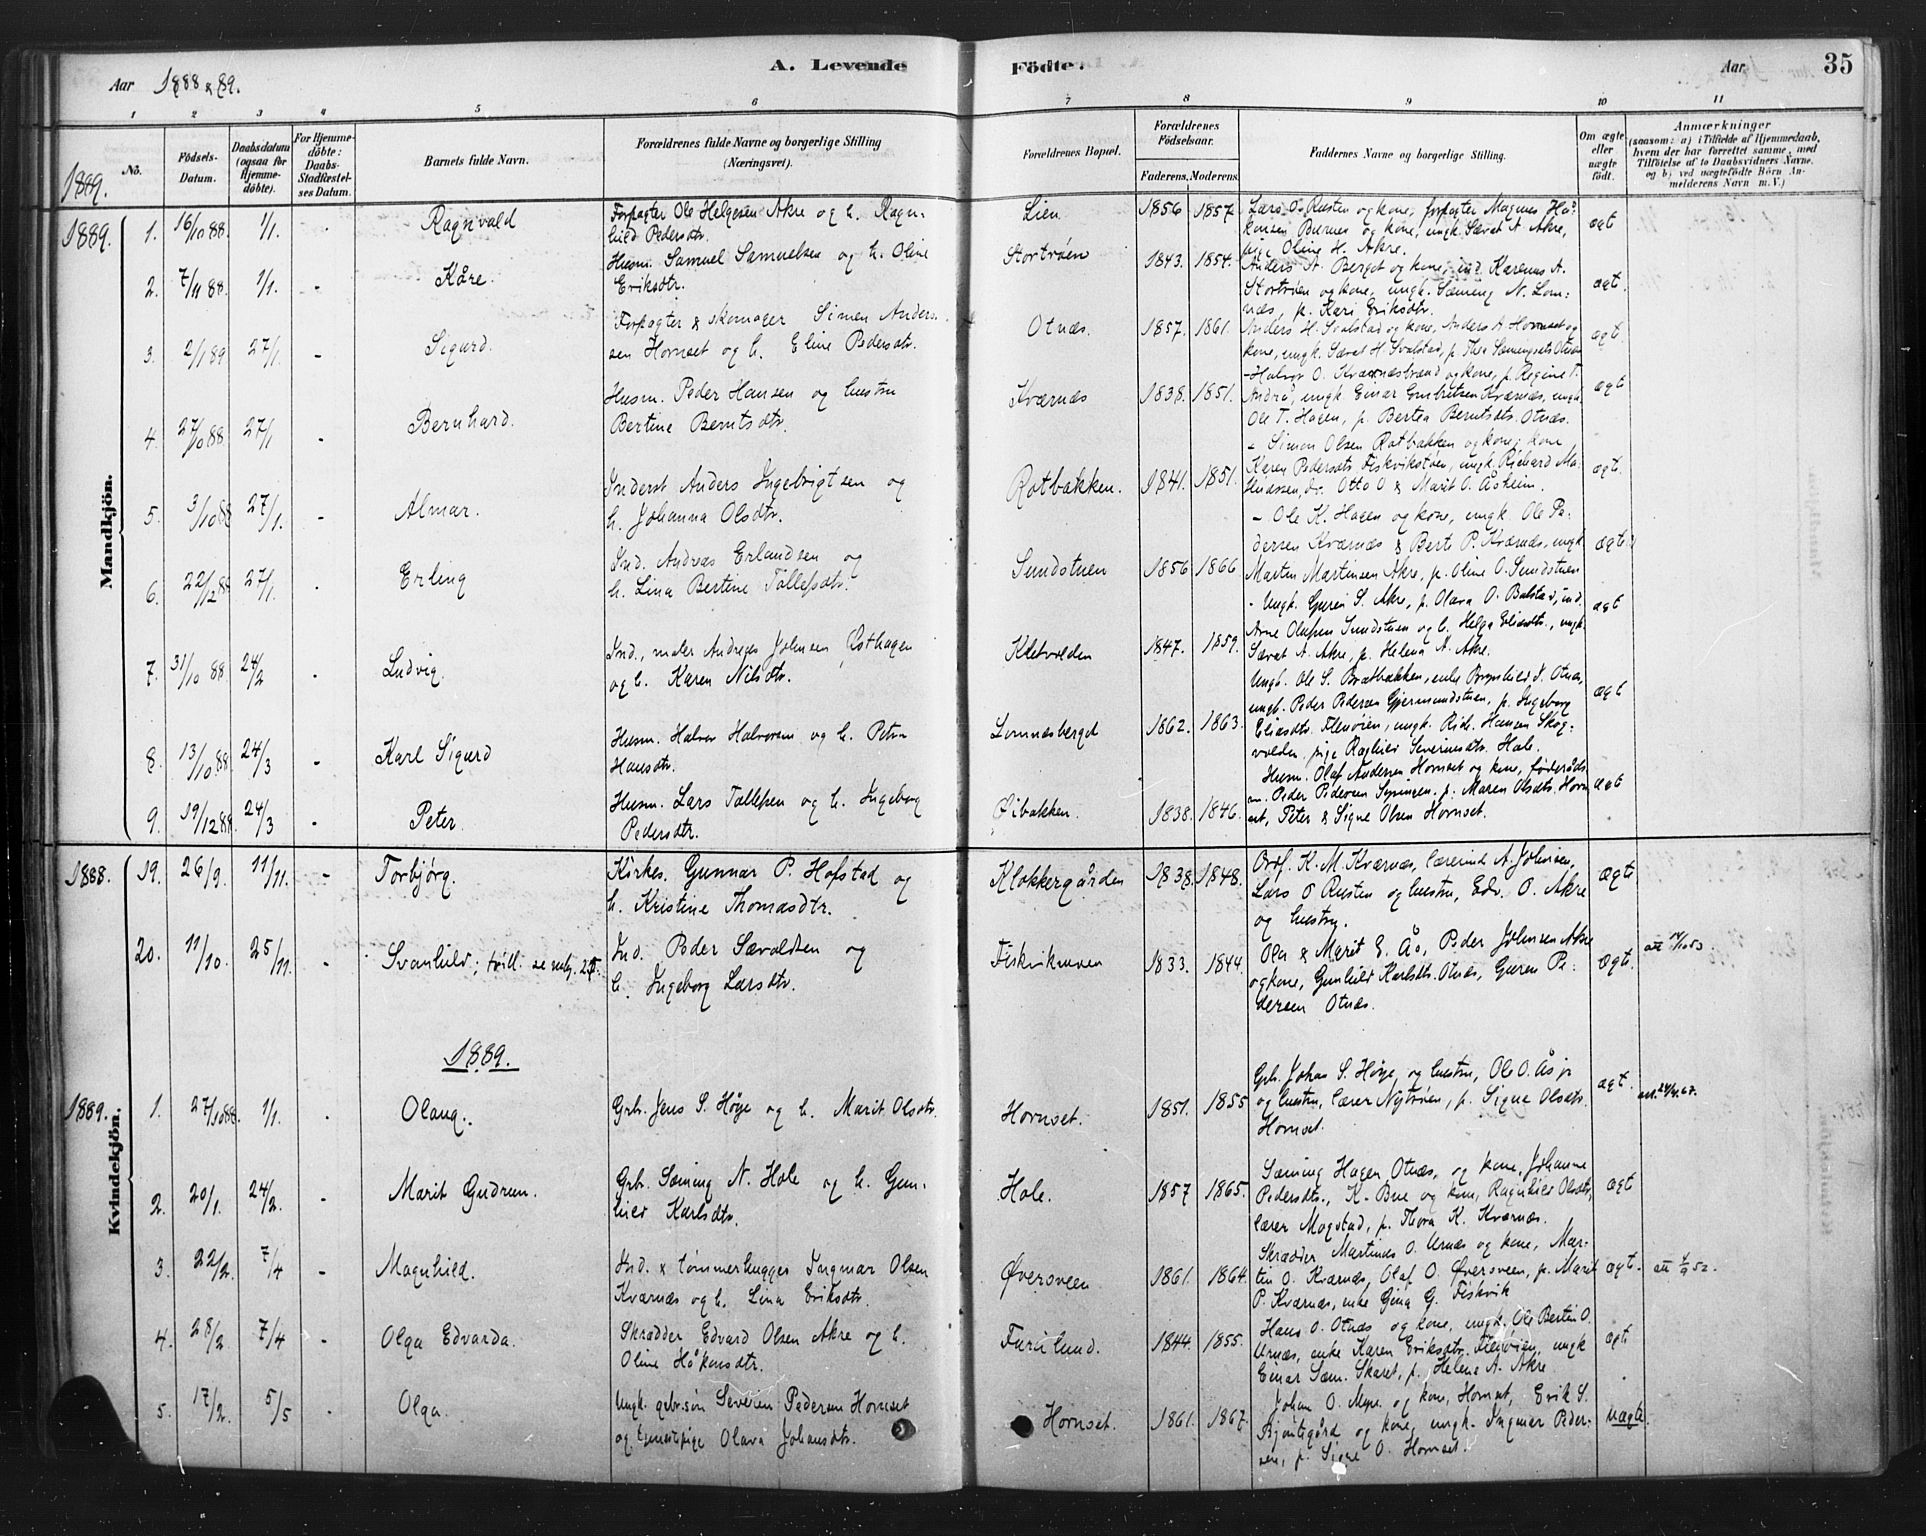 Aar 1888 & 89.
A. Levende
Födte.
Aar
35
1 2 3 4 5 6 7 8 9 10 11
1889.
No.
Födsels-Datum.
Daabsdatum (ogsaa for Hjemmedöbte).
For Hjemmedöbte: Daabs-Stadfæstelses Datum.
Barnets fulde Navn.
Forældrenes fulde Navne og borgerlige Stilling (Næringsvei).
Forældrenes Bopæl.
Forældrenes Födselsaar.
Faderens. Moderens.
Faddernes Navne og borgerlige Stilling.
Om ægte eller uægte födt.
Anmærkninger
(saasom: a) i Tilfælde af Hjemmedaab, hvem der har forrettet samme, med Tilföielse af to Daabsvidners Navne, og b) ved uægtefödte Börn Anmelderens Navn m. V.)
Mandkjön.
1889. 1. 16/10 88. 1/1. Ragnvald
Forpagter Ole Helgesen Akre og h. Ragnhild Pedersdtr.
Lien 1856 1857.
Lars O. Rusten og kone, forpagter Magnus Håkonsen Burnes og kone, ungk. Sævat A. Akre, pige Oline H. Akre.
ægt
2. 7/11 88. 1/1. - Kåre.
Husm. Samuel Samuelsen og h. Oline Eriksdtr.
Stortrøen 1843. 1854.
Anders A. Berget og kone, ind. Karenus A. Stortrøen og kone, ungk. Sæming N. Lomnæs, p. Kari Eriksdtr.
ægt.
3. 2/1 89 27/1. - Sigurd.
Forpagter & skomager Simen Andersen Hornset og h. Eline Pedersdtr.
Otnæs. 1857. 1861.
Anders H. Svalstad og kone, Anders A Hornset og kone, ungk. Sævat H. Svalstad, p. Thea Sæmingsdtr. Otnæs
ægt.
4. 27/10 88 27/1 Bernhard.
Husm. Peder Hansen og hustru Bertine Berntsdtr.
Kværnæs 1838. 1851.
- Halvor O. Kværnæsbrænd og kone, p. Regine T. Andrå, ungk. Einar Embretsen Kværnæs, ungk. Ole T. Hagen, p. Berthe Berntsdtr. Otnæs.
ægt
5. 3/10 88 27/1. - Almar.
Inderst Anders Ingebrigtsen og h. Johanna Olsdtr.
Rotbakken. 1841. 1851.
- Simon Olsen Rotbakken og kone; kone Karen Pedersdtr. Fiskvikstøen, ungk. Richard Mathiassen, do. Otto O & Marit O. Åsheim.
ægt.
6. 22/12 88 27/1. Erling
Ind. Andreas Erlandsen og h. Lina Bertine Tollefsdtr.
Sundstuen 1856 1866
- Ole K. Hagen og kone, ungk. Ole Pedersen Kværnæs & Berte P. Kværnæs, ungk Martin Martinsen Akre, p. Oline O. Sundstuen
ægt
7. 31/10 88. 24/2 Ludvig.
Ind., maler Andreas Johnsen Rothagen og h. Karen Nilsdtr.
Kletvolden 1847. 1859.
- Ungk. Guren S. Akre, p. Olava O. Bolstad, ind. Arne Olufsen Sundstuen og h. Helga Eliasdtr., ungk. Sævat A. Akre, p. Helena A. Akre.
ægt
8. 13/10 88 24/3 - Karl Sigurd
Husm. Halvor Halvorsen og h. Petra Hansdtr.
Lomnæsberget 1862. 1863.
Ungk. Ole S. Bratbakken, enke Brynhild J. Otnæs, ungk. Peder Pedersen Gjermundstuen, p. Ingeborg Eliasdtr. Flenøien, ungk. Rich. Hansen Skogvolden, pige Ragnhild Severinsdtr. Hole.
ægt
9. 19/12 88. 24/3 Peter.
Husm. Lars Tollefsen og h. Ingeborg Pedersdtr.
Øibakken. 1838. 1846.
Husm. Olaf Andersen Hornset og kone, føderådsm. Peder Pedersen, p. Maren Olsdtr. Hornset, Peter & Signe Olsen Hornset.
ægt
Kvindekjön.
1888. 19. 26/9. 11/11. - Torbjørg.
Kirkes. Gunnar P. Hofstad og h. Kristine Thomasdtr.
Klokkergården 1838. 1848.
Ordf. K. M. Kværnæs, lærerinde A. Johnsen, Lars O Rusten og hustru, Edv. O. Akre og hustru.
ægte
20. 11/10. 25/11. - Svanhild; tvill.
Ind. Peder Sævaldsen og h. Ingeborg Larsdtr.
Fiskvikmoen 1833. 1844.
Ole & Marit E. Åo, Peder Johnsen Akre og kone, Gunhild Karlsdtr. Otnæs, Guren Pedersen Otnæs.
ægte.
1889.
1889. 1. 27/10 88. 1/1. Olaug.
Grb. Jens S. Høye og h. Marit Olsdtr.
Hornset. 1851. 1855
Grb. Johan S. Høye og hustru, Ole O. Ås jr og hustru, lærer Nytrøen, p. Signe Olsdtr. Hornset.
ægt.
2. 20/1. 24/2. - Marit Gudrun.
Grb. Sæming N. Hole og h. Gunhild Karlsdtr.
Hole. 1857 1865.
Sæming Hagen Otnæs, og kone, Johanne Pedersdtr., K. Bue og kone, Ragnhild Olsdtr, lærer Mogstad, p. Thora K. Kværnæs.
ægt
3. 22/2. 7/4 - Magnhild.
Ind. & tømmerhugger Ingmar Olsen Kværnæs og h. Lina Eriksdtr.
Øversveen 1861. 1864.
Skrædder Martinus O. Urnæs og kone, Martin O. Kværnæs, Olaf O. Øversveen, p. Marit P. Kværnæs, enke Gina G. Fiskvik
ægt.
4. 28/2 7/4 - Olga Edvarda.
Skrædder Edvard Olsen Akre og h. Oline Håkonsdtr.
Furulund. 1844. 1855.
Hans O. Otnæs og kone, ungk. Ole Bertin O. Urnæs, enke Karen Eriksdtr. Flenøien, ungk Einar Sæm. Skaret, p. Helene A. Akre
ægt
5. 17/2. 5/5 Olga.
Ungk. gbr.søn Severin Pedersen Hornset og tjenestepige Olava Johansdtr.
Hornset. 1861. 1867.
Johan O. Myre og kone, Hornset, Erik S. Bjøntegård og kone, ungk. Ingmar Pedersen, p. Signe O. Hornset.
uægte.